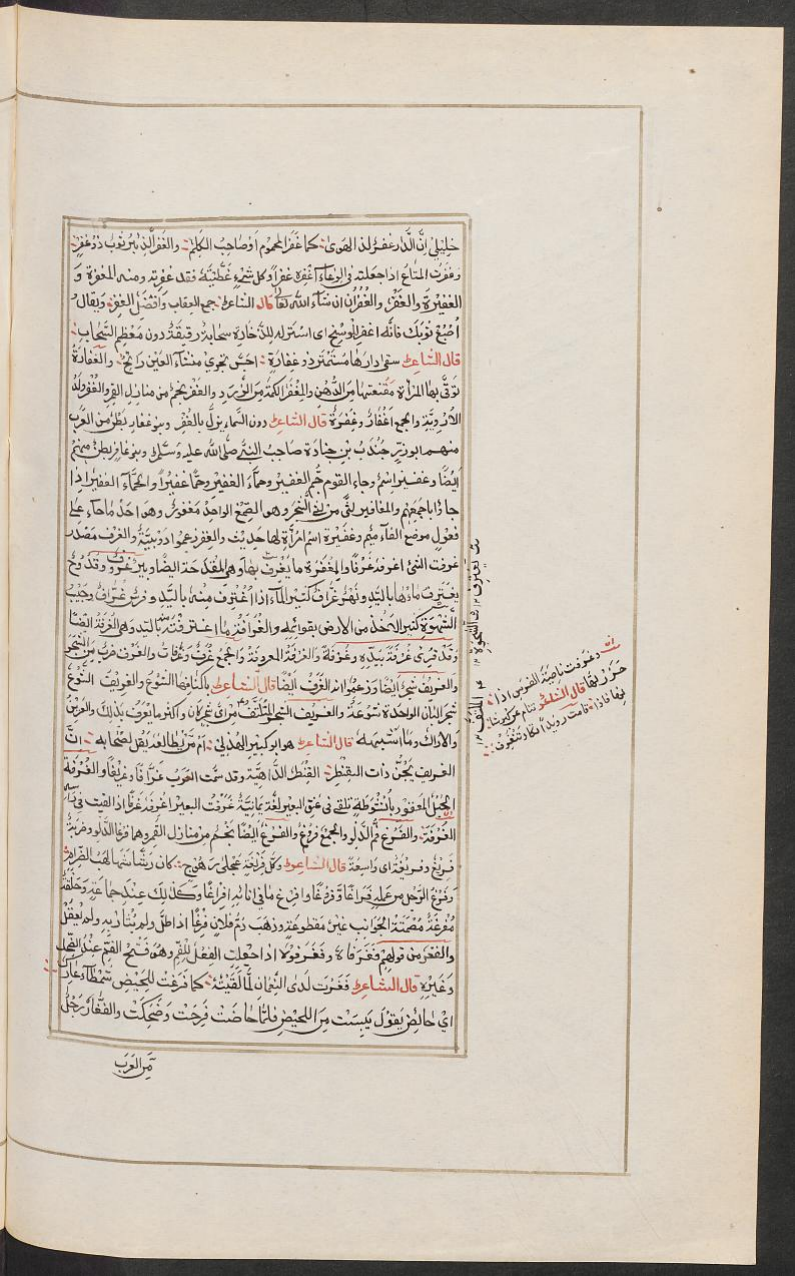 خليلي ان الدار غفر لذى الهوى كما غفر المحموم او صاحب الكلم والغفر الذئبر ثوب ذو غفر
وغفرت المتاع اذا جعلته فى الوعاء اغفره غفرا وكل شئ غطيته فقد غفرته ومنه المغفرة و
الغفيرة والغفر والغفران ان شاء الله تعالى قال الشاعر جمع العقاب وافضل الغفر ويقال
اصبغ ثوبك فانه اغفر للوسخ اى استر له للغفارة سحابة رقيقة دون معظم السحاب
قال الشاعر سقى دارها مستمطر ذو غفارة اجش تحرى منشاء العين رائح والغفارة
توقى بها المرأة مقنعتها من الدهن والمغفر الكمة من الزرد والغفر نجم من منازل القمر والغفر ولد
الاروية والجمع اغفار وغفرة قال الشاعر دون السماء يزل بالغفر وبنو غفار بطن من العرب
منهم ابو ذر جندب بن جنادة صاحب النبى صلى الله عليه وسلم وبنو غافر بطن منهم
ايضا وغفير اسم وجاء القوم جم الغفير وجماء الغفير وجما غفيرا والجماء الغفير اذا
جاؤا باجمعهم والمغافير لثى من لثى الشجر وهو الصمغ الواحد مغفور وهو احد ما جاء على
فعول موضع الفاء ميم وغفيرة اسم امرأة لها حديث والغفر زعموا دويبة والغرف مصدر
غرفت الشئ اغرفه غرفا والمغرفة ما يغرف بها وهى المقدحة ايضا وبير غروف وقدوح
يغترف ماءها باليد ونهر غراف كثير الماء اذا اغترف منه باليد وفرس غراف رحيب
الشهوة كثير الاخذ من الارض بقوائمه والغرافة ما اغترفته باليد وهى الغرفة ايضا
وقد قرئ غرفة بيده وغرفة والغرفة المعروفة والجمع غرف وغرفات والغرف ضرب من الشجر
والغريف شجر ايضا وزعموا انه الغرف ايضا قال الشاعر باكنافها الشوع والغريف الشوع
شجر البان الواحدة شوعة والغريف الشجر الملتف من اى شجر كان واكثر ما يعرف بذلك والعرين
والاراك وما اشبهه قال الشاعر هو ابو كبير الهذلى ام من يطالعه يقل لصحابه ان
الغريف يجن ذات القنطر القنطر الداهية وقد سمت العرب غرافا وغريفا والغرفة
الحبل المعقود بانشوطة تلقى فى عنق البعير لغة يمانية غرفت البعير اغرفه غرفا اذا القيت فى رأسه
الغرفة والفرغ فرغ الدلو والجمع فروغ والفرغ ايضا نجم من منازل القمر وهما فرغا الدلو وضربة
فريغ وفريغة اى واسعة قال الشاعر وكل فريغة عجلى رموح كان رشاشها لهب الضرام
وفرغ الرجل من عمله فراغا وفرغا وافرغ ما فى انائه افراغا وكذلك عند جماعة وحلقة
مفرغة مصمتة الجوانب غير مقطوعة وذهب دم فلان فرغا اذا طل ولم يثأر به ولم يعقل
والفغر من قولهم فغر فاه وفغر فوه اذا جعلت الفعل للفم وهو فتح الفم عند الضحك
وغيره قال الشاعر فغرت لدى النعمان لما لقيته كما فرغت للحيض شمطاء عارك
اى حائض يقول يبست من الحيض فلما حاضت فرحت وضحكت والفغار رجل
من العرب
وغرفت ناصية الفرس اذا
جززتها قال الشاعر تنام عن كبر شانها فاذا قامت رويدا تكاد تنغرف
يغترف
الشحوة
الملتف